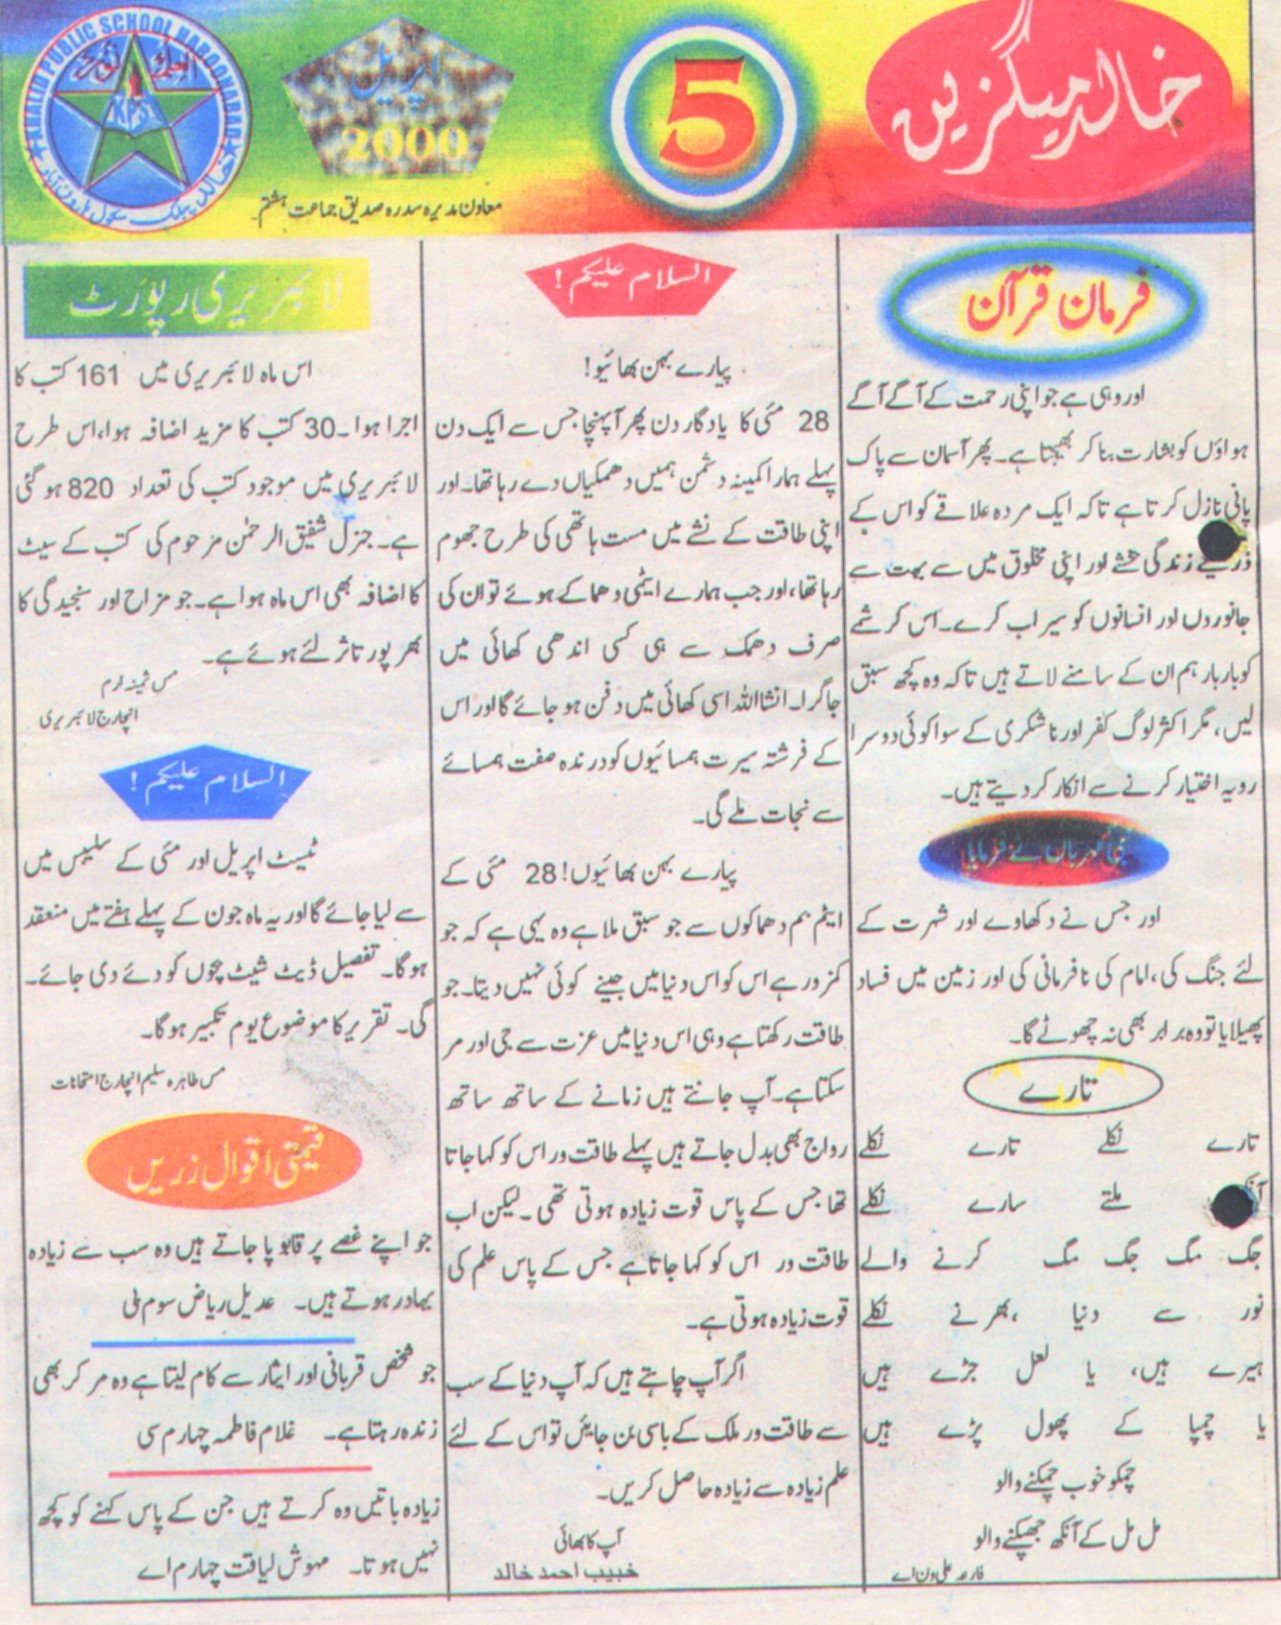 خالد میگزین
5
اپریل
2000
معاون مدیرہ سدرہ صدیق جماعت ہشتم۔
KHALID PUBLIC SCHOOL HAROONABAD
العلم نور
KPS
خالد پبلک سکول ہارون آباد
فرمان قرآن
اور وہی ہے جو اپنی رحمت کے آگے آگے
ہواؤں کو بشارت بنا کر بھیجتا ہے۔ پھر آسمان سے پاک
پانی نازل کرتا ہے تاکہ ایک مردہ علاقے کو اس کے
ذریعے زندگی بخشے اور اپنی مخلوق میں سے بہت سے
جانوروں اور انسانوں کو سیراب کرے۔ اس کرشمے
کو بار بار ہم ان کے سامنے لاتے ہیں تاکہ وہ کچھ سبق
لیں، مگر اکثر لوگ کفر اور ناشکری کے سوا کوئی دوسرا
رویہ اختیار کرنے سے انکار کر دیتے ہیں۔
نبی مہربان نے فرمایا
اور جس نے دکھاوے اور شہرت کے
لئے جنگ کی، امام کی نافرمانی کی اور زمین میں فساد
پھیلایا تو وہ برابر بھی نہ چھوٹے گا۔
تارے
تارے نکلے تارے نکلے
ملتے سارے نکلے
جگ مگ جگ مگ کرنے والے
نور سے دنیا بھرنے نکلے
ہیرے ہیں، یا لعل جڑے ہیں
یا چمپا کے پھول پڑے ہیں
چمکو خوب چمکنے والو
مل مل کے آنکھ جھپکنے والو
علی ون اے
السلام علیکم!
پیارے بہن بھائیو!
28 مئی کا یادگار دن پھر آ پہنچا جس سے ایک دن
پہلے ہمارا کمینہ دشمن ہمیں دھمکیاں دے رہا تھا۔ اور
اپنی طاقت کے نشے میں مست ہاتھی کی طرح جھوم
رہا تھا، اور جب ہمارے ایٹمی دھماکے ہوئے تو ان کی
صرف دھمک سے ہی کسی اندھی کھائی میں
جا گرا۔ انشااللہ اسی کھائی میں دفن ہو جائے گا اور اس
کے فرشتہ سیرت ہمسائیوں کو درندہ صفت ہمسائے
سے نجات ملے گی۔
پیارے بہن بھائیوں! 28 مئی کے
ایٹم بم دھماکوں سے جو سبق ملا ہے وہ یہی ہے کہ جو
کمزور ہے اس کو اس دنیا میں جینے کوئی نہیں دیتا۔ جو
طاقت رکھتا ہے وہی اس دنیا میں عزت سے جی اور مر
سکتا ہے۔ آپ جانتے ہیں زمانے کے ساتھ ساتھ
رواج بھی بدل جاتے ہیں پہلے طاقت ور اس کو کہا جاتا
تھا جس کے پاس قوت زیادہ ہوتی تھی ۔ لیکن اب
طاقت ور اس کو کہا جاتا ہے جس کے پاس علم کی
قوت زیادہ ہوتی ہے۔
اگر آپ چاہتے ہیں کہ آپ دنیا کے سب
سے طاقت ور ملک کے باسی بن جایئں تو اس کے لئے
علم زیادہ سے زیادہ حاصل کریں۔
آپ کا بھائی
خبیب احمد خالد
لائبریری رپورٹ
اس ماہ لائبریری میں 161 کتب کا
اجرا ہوا۔ 30 کتب کا مزید اضافہ ہوا، اس طرح
لائبریری میں موجود کتب کی تعداد 820 ہو گئی
ہے۔ جنرل شفیق الرحمٰن مرحوم کی کتب کے سیٹ
کا اضافہ بھی اس ماہ ہوا ہے۔ جو مزاح اور سنجیدگی کا
بھرپور تاثر لئے ہوئے ہے۔
مس ثمینہ ارم
انچارج لائبریری
السلام علیکم!
ٹیسٹ اپریل اور مئی کے سلیبس میں
سے لیا جائے گا اور یہ ماہ جون کے پہلے ہفتے میں منعقد
ہوگا۔ تفصیل ڈیٹ شیٹ بچوں کو دے دی جائے۔
گی۔ تقریر کا موضوع یوم تکبیر ہوگا۔
مس طاہرہ سلیم انچارج امتحانات
قیمتی اقوال زریں
جو اپنے غصے پر قابو پا جاتے ہیں وہ سب سے زیادہ
بہادر ہوتے ہیں۔ عدیل ریاض سوم بی
جو شخص قربانی اور ایثار سے کام لیتا ہے وہ مر کر بھی
زندہ رہتا ہے۔ غلام فاطمہ چہارم سی
زیادہ باتیں وہ کرتے ہیں جن کے پاس کہنے کو کچھ
نہیں ہوتا۔ مہوش لیاقت چہارم اے